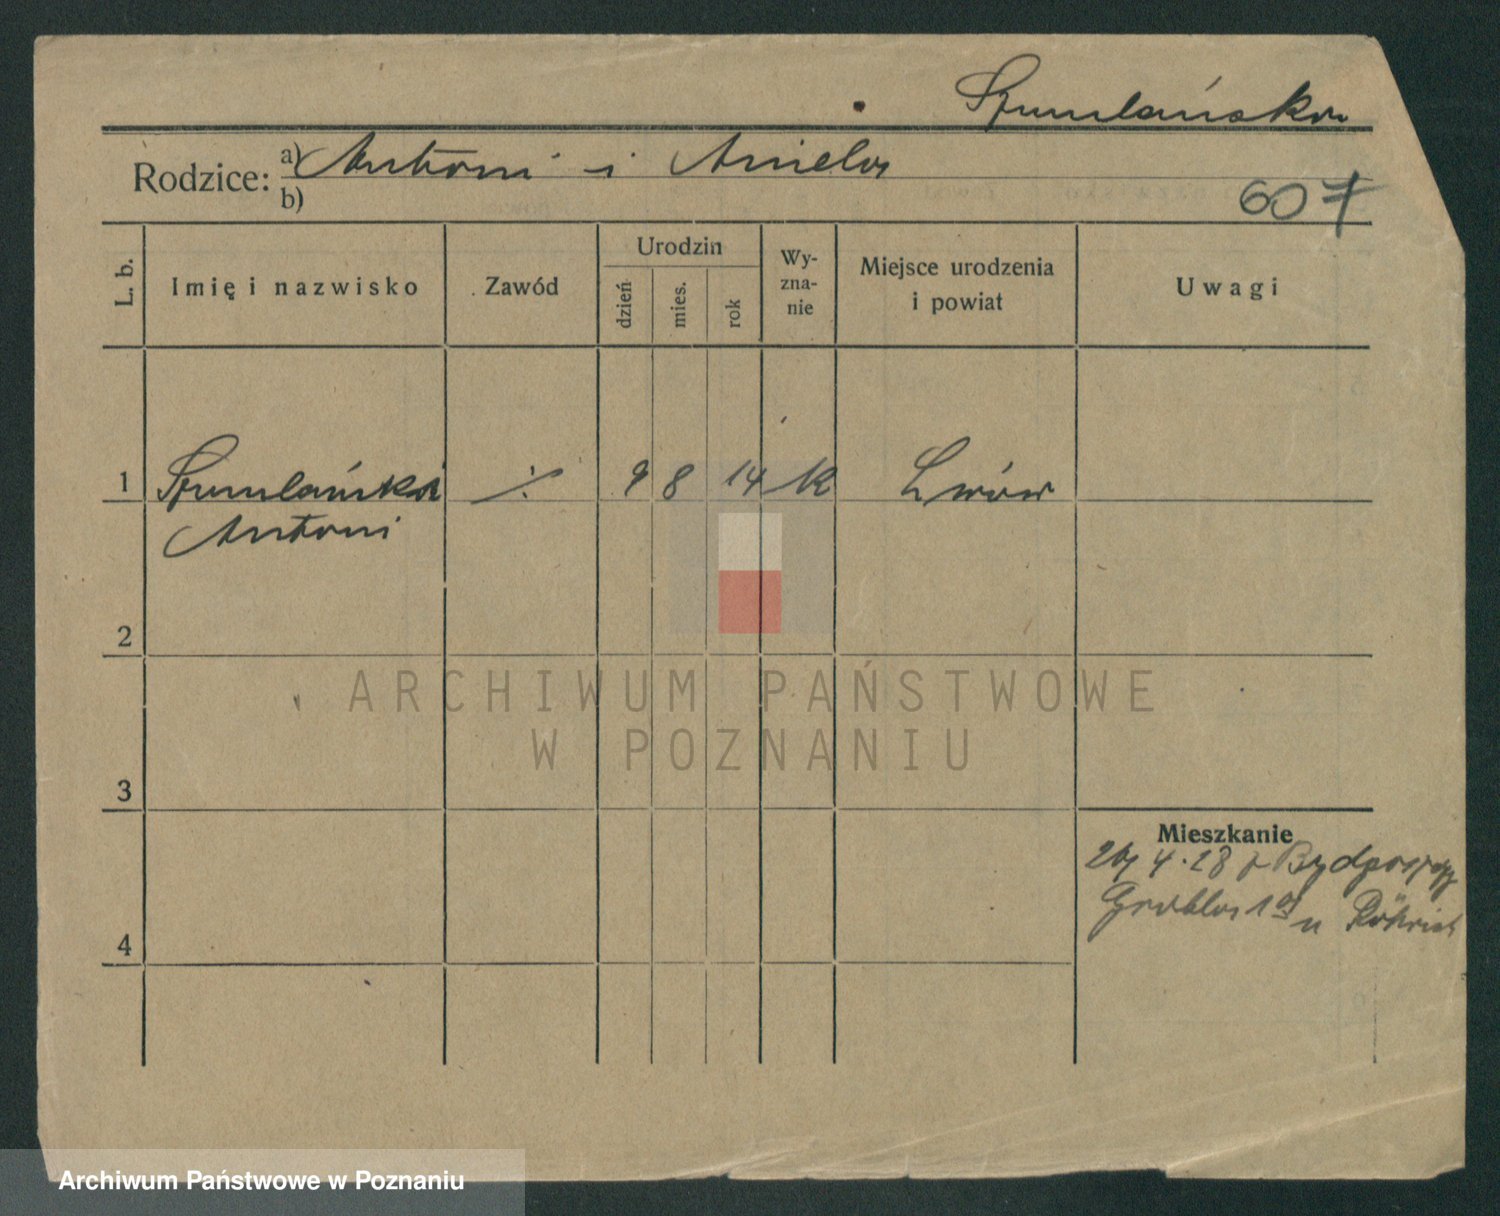 Szumlańska
Rodzice: a) Antoni i Aniela
b)
607
L. b.
Imię i nazwisko
Zawód
Urodzin
dzień
mies.
rok
Wy-
zna-
nie
Miejsce urodzenia
i powiat
Uwagi
1 Szumlański ·/· 9 8 14 k Lwów
Antoni
2
3
4
Mieszkanie
4.28 z Bydgoszczy
Grobla 1a u
ARCHIWUM PAŃSTWOWE
W POZNANIU
Archiwum Państwowe w Poznaniu